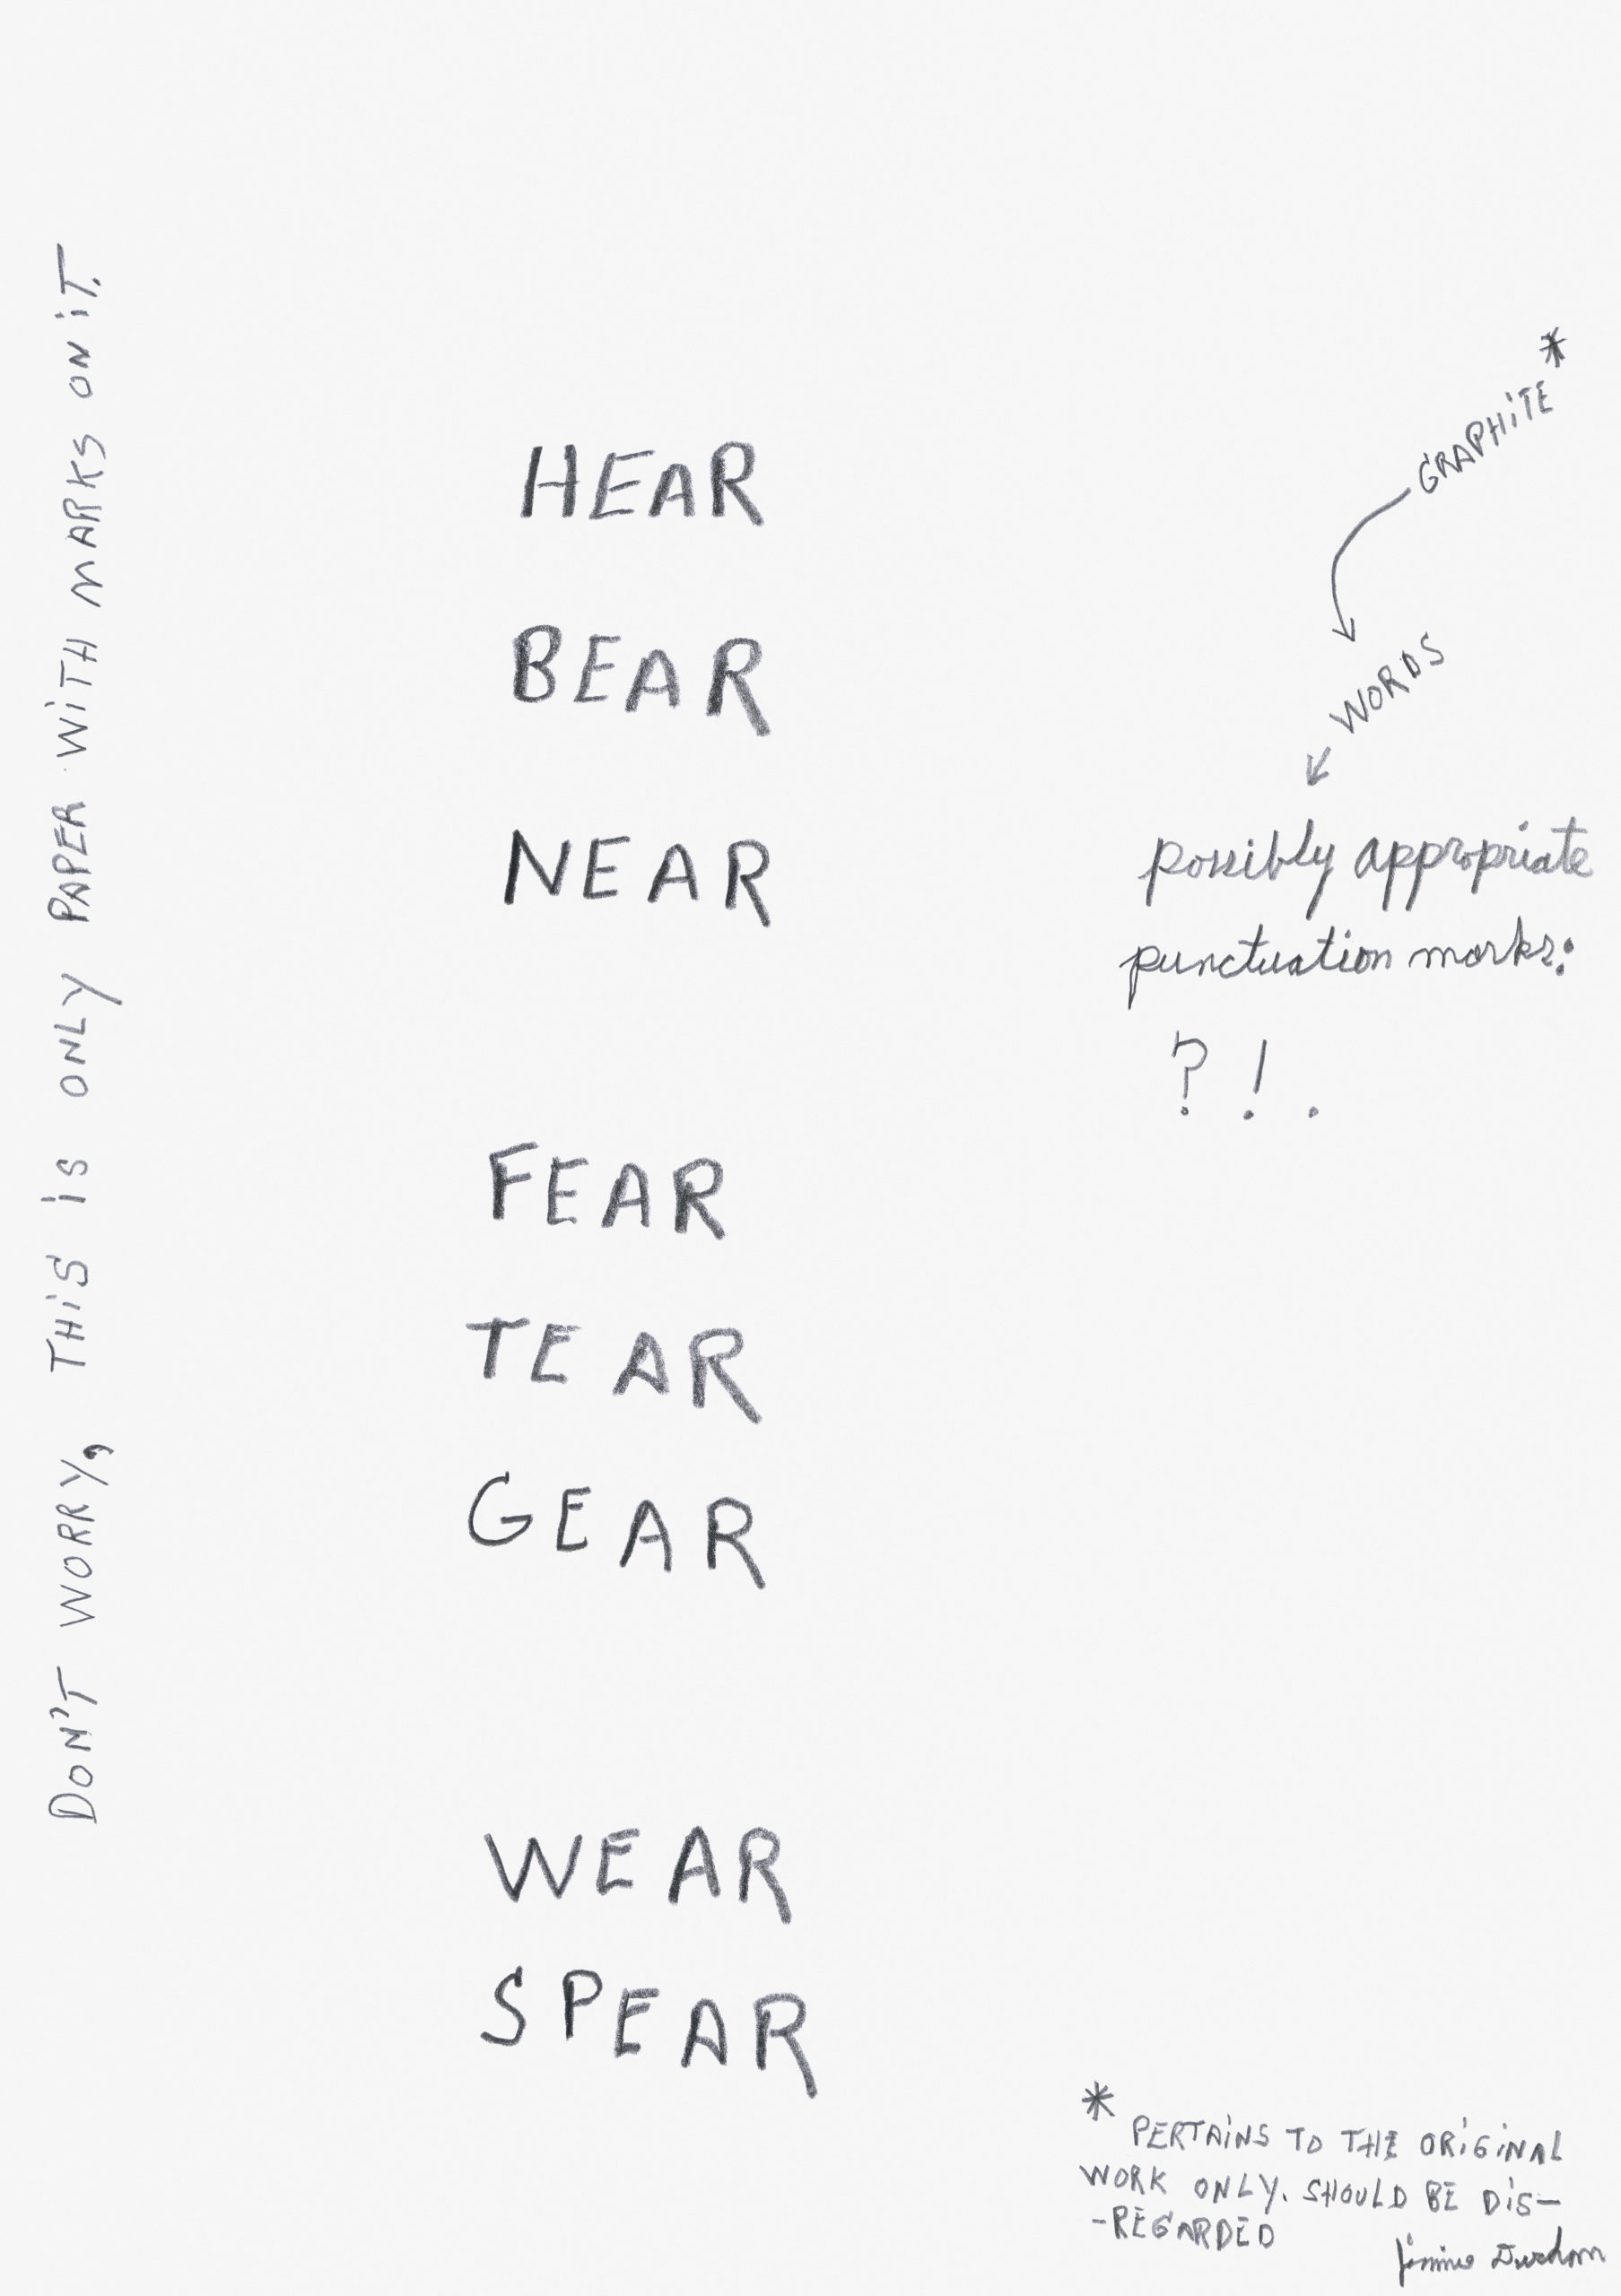 DON'T WORRY, THiS iS ONLY PAPER WiTH MARKS ON iT.
HEAR
BEAR
NEAR
FEAR
TEAR
GEAR
WEAR
SPEAR
GRAPHiTE*
WORDS
possibly appropriate
punctuation marks:
? ! .
* PERTAiNS TO THE ORiGiNAL
WORK ONLY. SHOULD BE DiS-
-REGARDED
Jimmie Durham